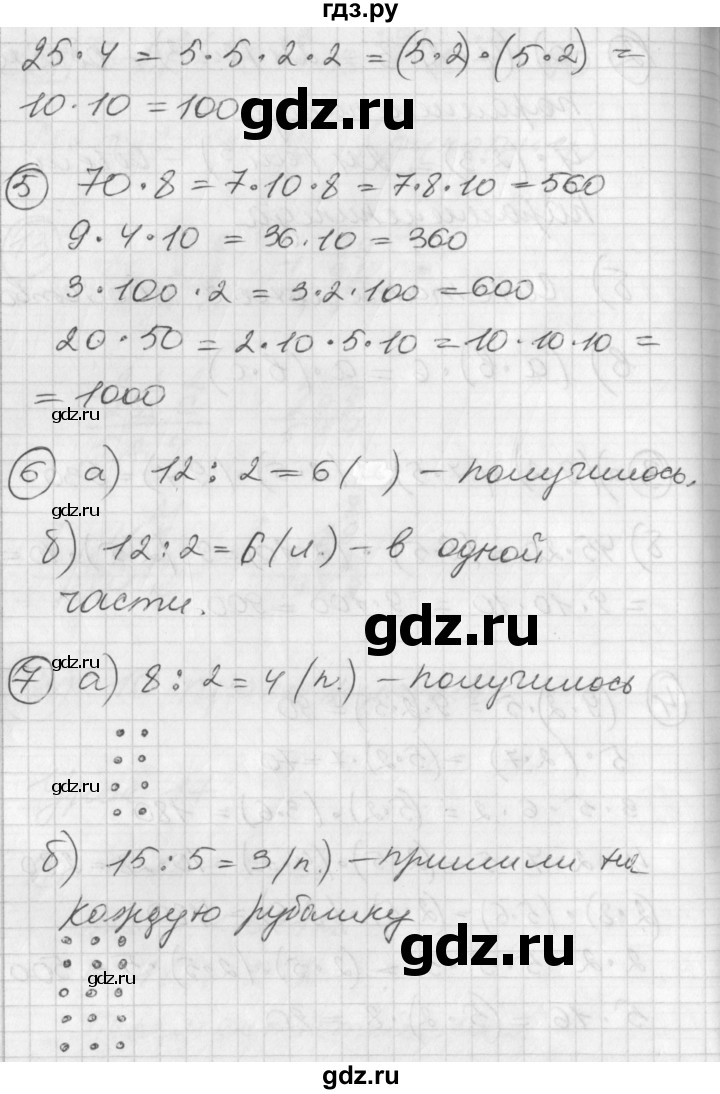 гдз.ру
25·4 = 5·5·2·2 = (5·2)·(5·2) =
10·10 = 100
gdz.ru
5 70·8 = 7·10·8 = 7·8·10 = 560
9·4·10 = 36·10 = 360
3·100·2 = 3·2·100 = 600
20·50 = 2·10·5·10 = 10·10·10 =
= 1000
gdz.ru
6 а) 12:2 = 6 ( ) – получилось.
gdz.ru
б) 12:2 = 6 (л.) – в одной
части.
gdz.ru
gdz.ru
7 а) 8:2 = 4 (п.) – получилось
gdz.ru
б) 15:5 = 3 (п.) – пришили на
каждую рубашку
gdz.ru
gdz.ru
gdz.ru